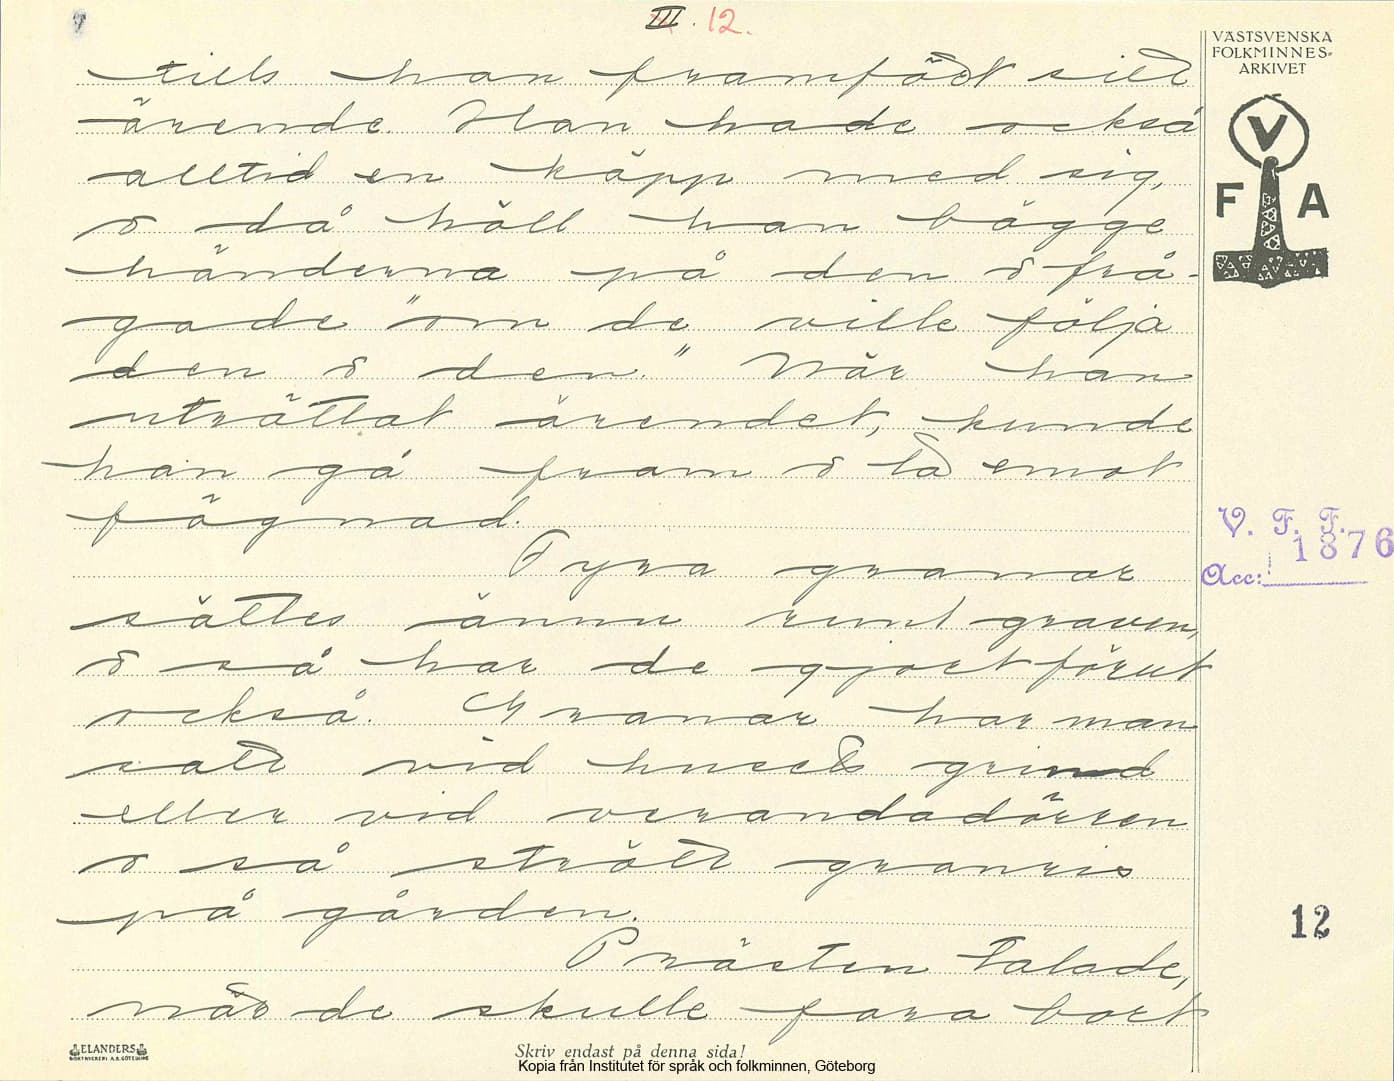 III. 12.
VÄSTSVENSKA
FOLKMINNES-
ARKIVET
V
F A
tills han framfört sitt
ärende. Han hade också
alltid en käpp med sig,
o då höll han bägge
händerna på den o frå-
gade "om de ville följa
den o den." När han
uträttat ärendet, kunde
han gå fram o ta emot
fägnad.
Fyra granar
sättes ännu runt graven,
o så har de gjort förut
också. Granar har man
satt vid husets grind
eller vid verandadörren
o så strött granris
på gården.
Prästen talade,
när de skulle fara bort
V. F. F.
1876
Acc:
12
ELANDERS
BOKTRYCKERI A.B. GÖTEBORG
Skriv endast på denna sida!
Kopia från Institutet för språk och folkminnen, Göteborg